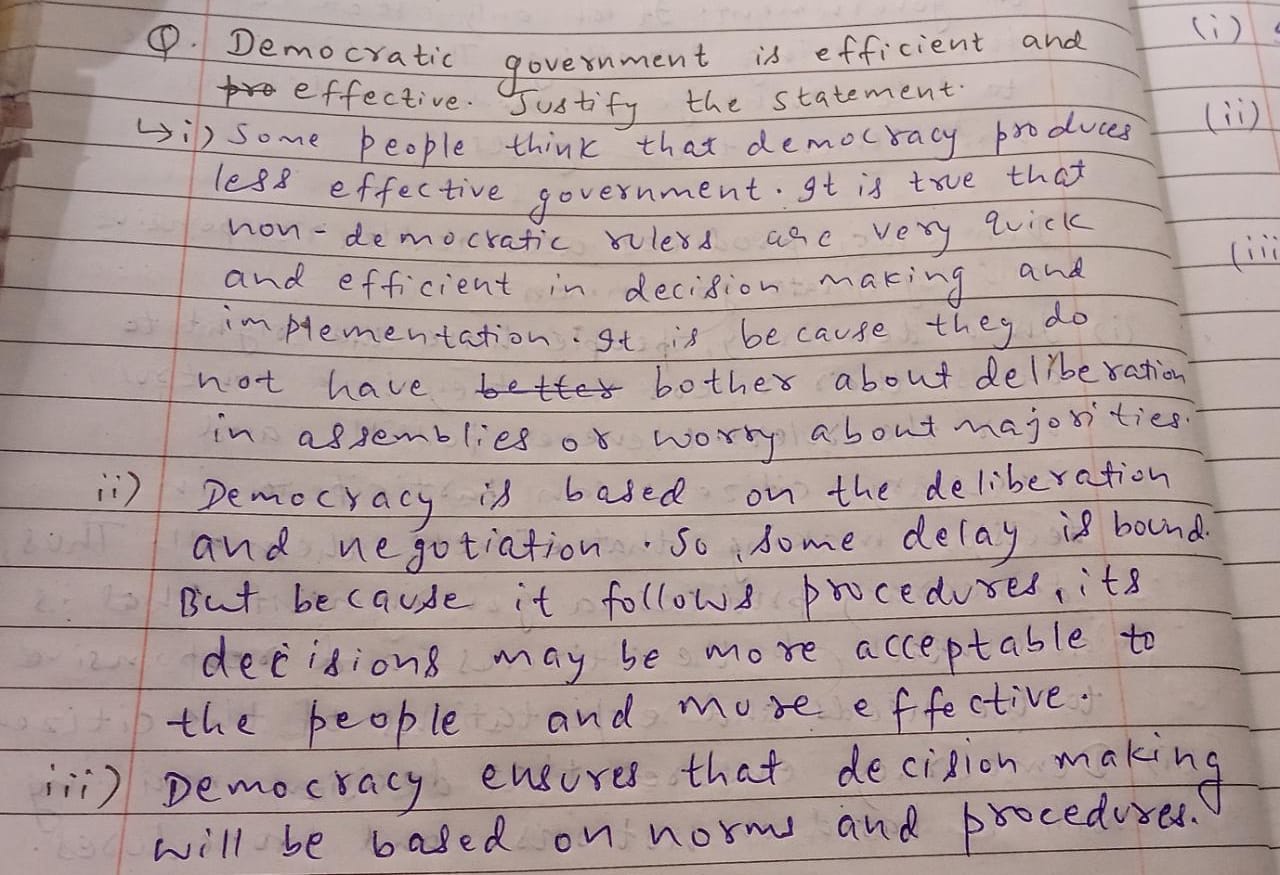 Q. Democratic government is efficient and
pro effective. Justify the statement.
↳i) Some people think that democracy produces
less effective government. It is true that
non-democratic rulers are very quick
and efficient in decision-making and
implementation. It is because they do
not have better bother about deliberation
in assemblies or worry about majorities.
ii) Democracy is based on the deliberation
and negotiation. So, some delay is bound.
But because it follows procedures, its
decisions may be more acceptable to
the people and more effective.
iii) Democracy ensures that decision making
will be based on norms and procedures.
(i)
(ii)
(iii